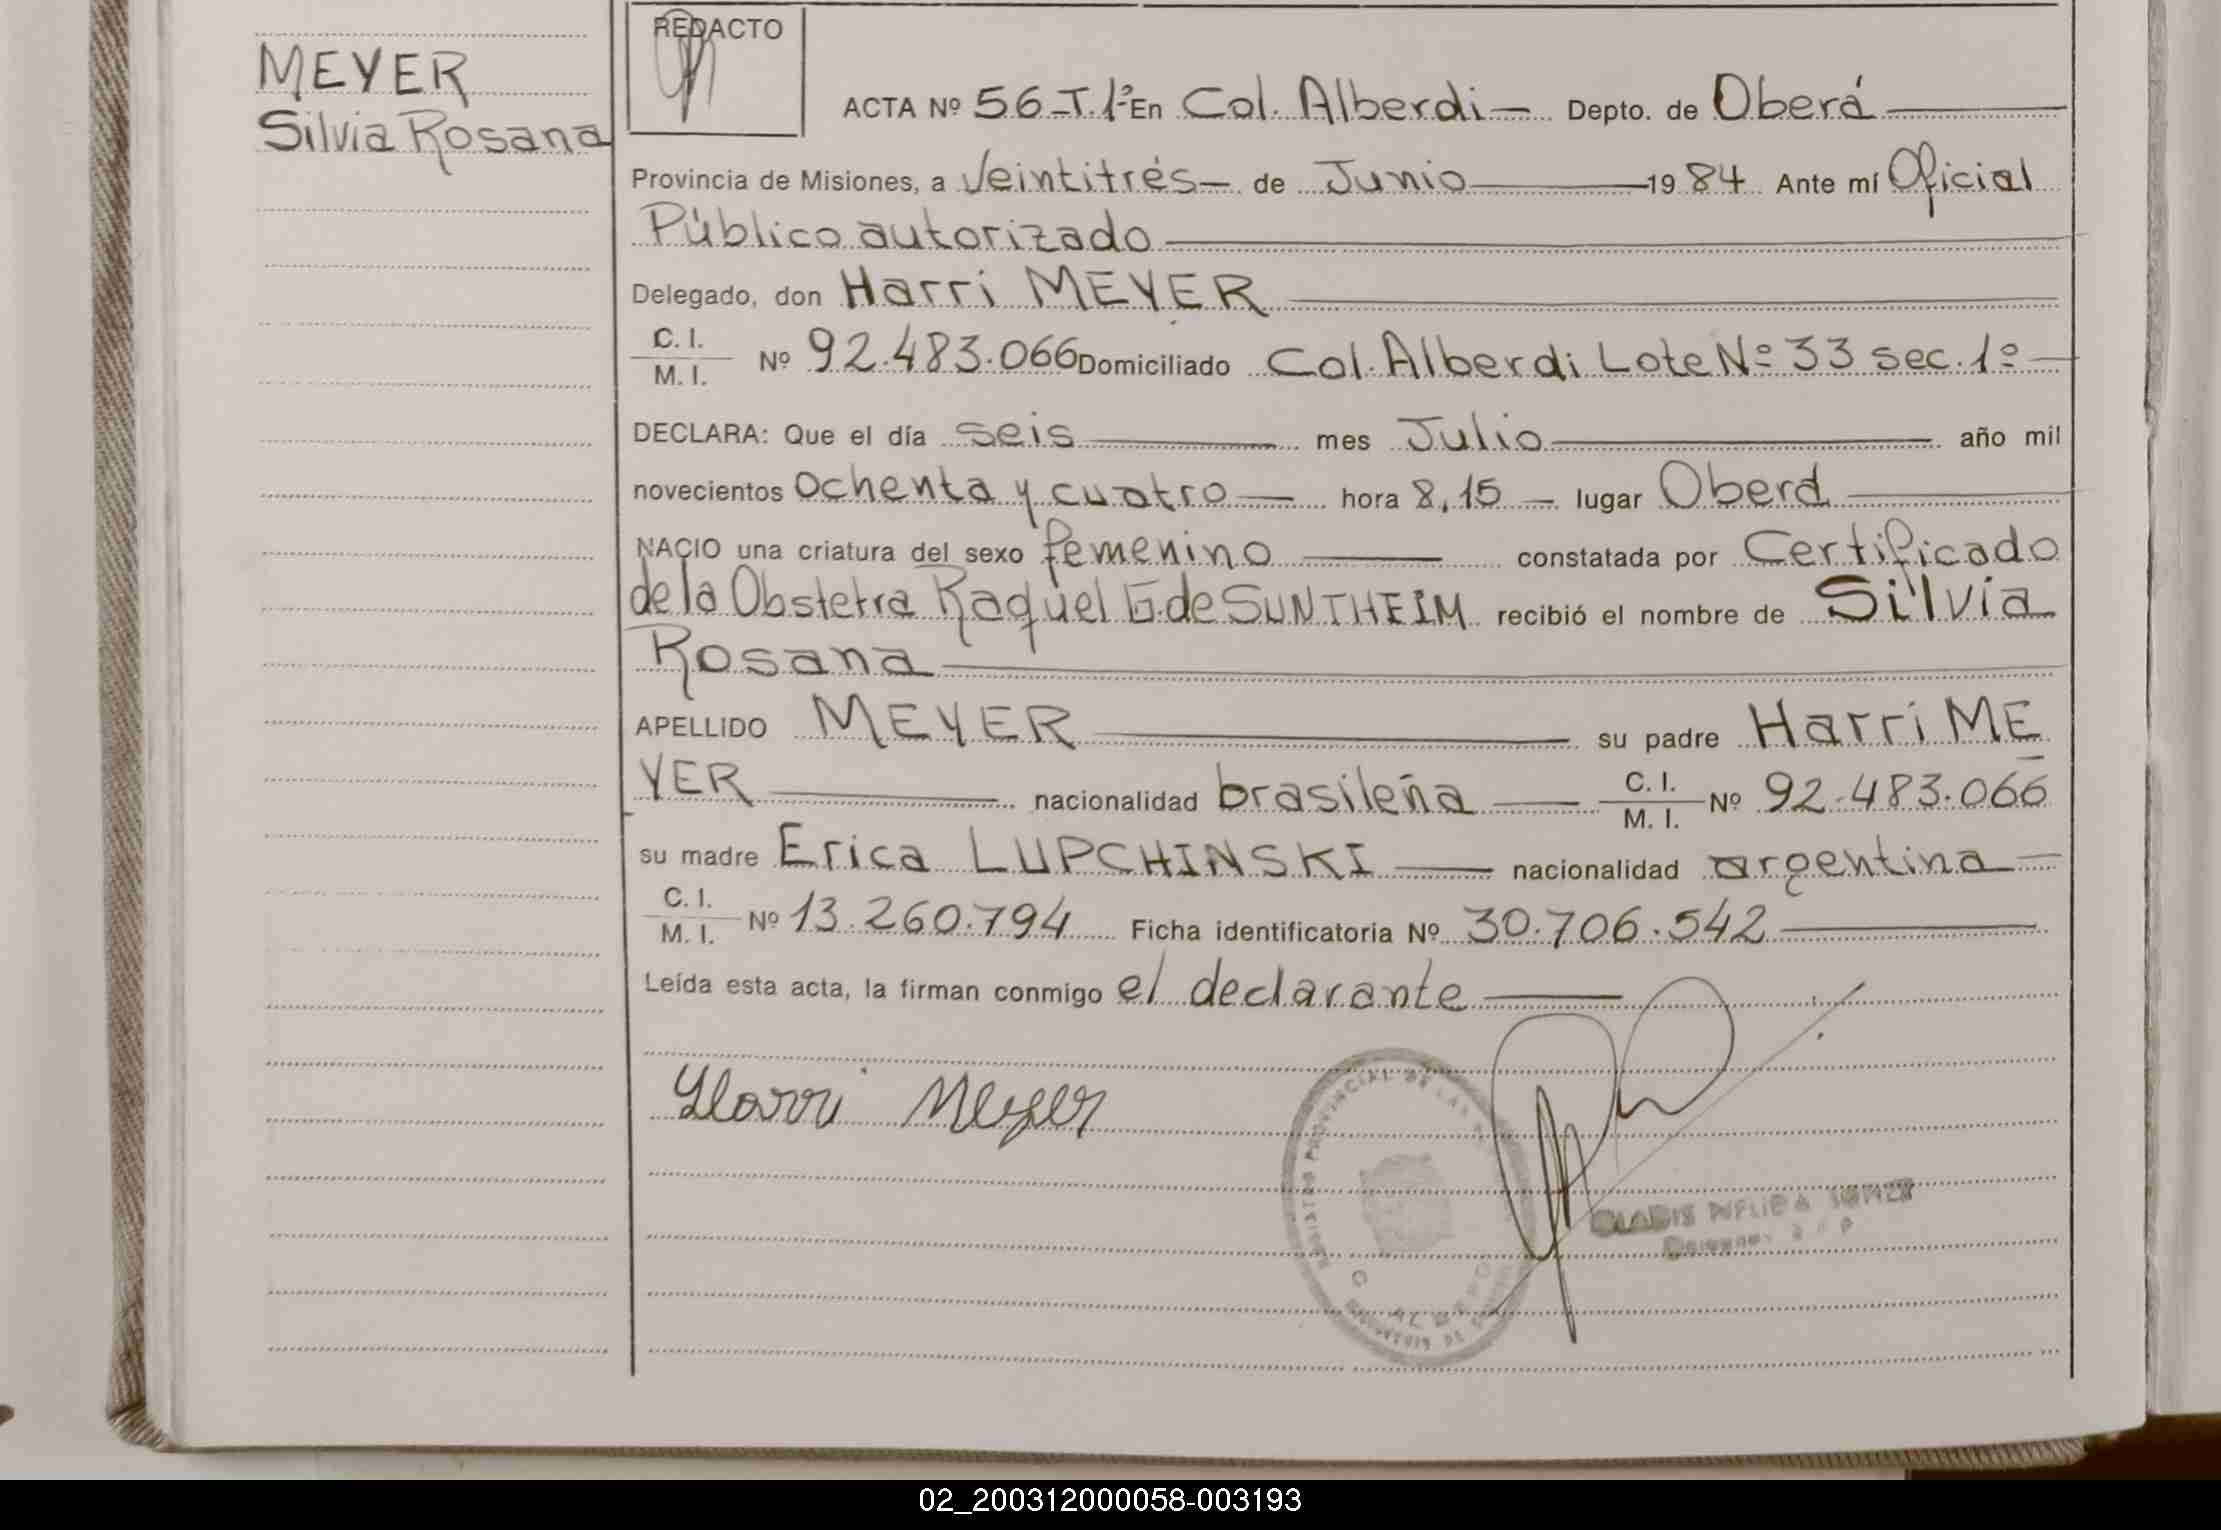 MEYER
Silvia Rosana
REDACTO
ACTA Nº 56-T.1º En Col. Alberdi — Depto. de Oberá
Provincia de Misiones, a Veintitrés — de Junio 1984 Ante mí Oficial
Público autorizado
Delegado, don Harri MEYER
C. I.
M. I. Nº 92.483.066 Domiciliado Col. Alberdi Lote Nº 33 sec. 1º
DECLARA: Que el día seis mes Julio año mil
novecientos ochenta y cuatro hora 8,15 lugar Oberá
NACIO una criatura del sexo femenino constatada por Certificado
de la Obstetra Raquel G. de SUNTHEIM recibió el nombre de Silvia
Rosana
APELLIDO MEYER su padre Harri ME
YER nacionalidad brasileña C. I. M. I. Nº 92.483.066
su madre Erica LUPCHINSKI nacionalidad argentina
C. I.
M. I. Nº 13.260.794 Ficha identificatoria Nº 30.706.542
Leída esta acta, la firman conmigo el declarante
Harri Meyer
02_200312000058-003193